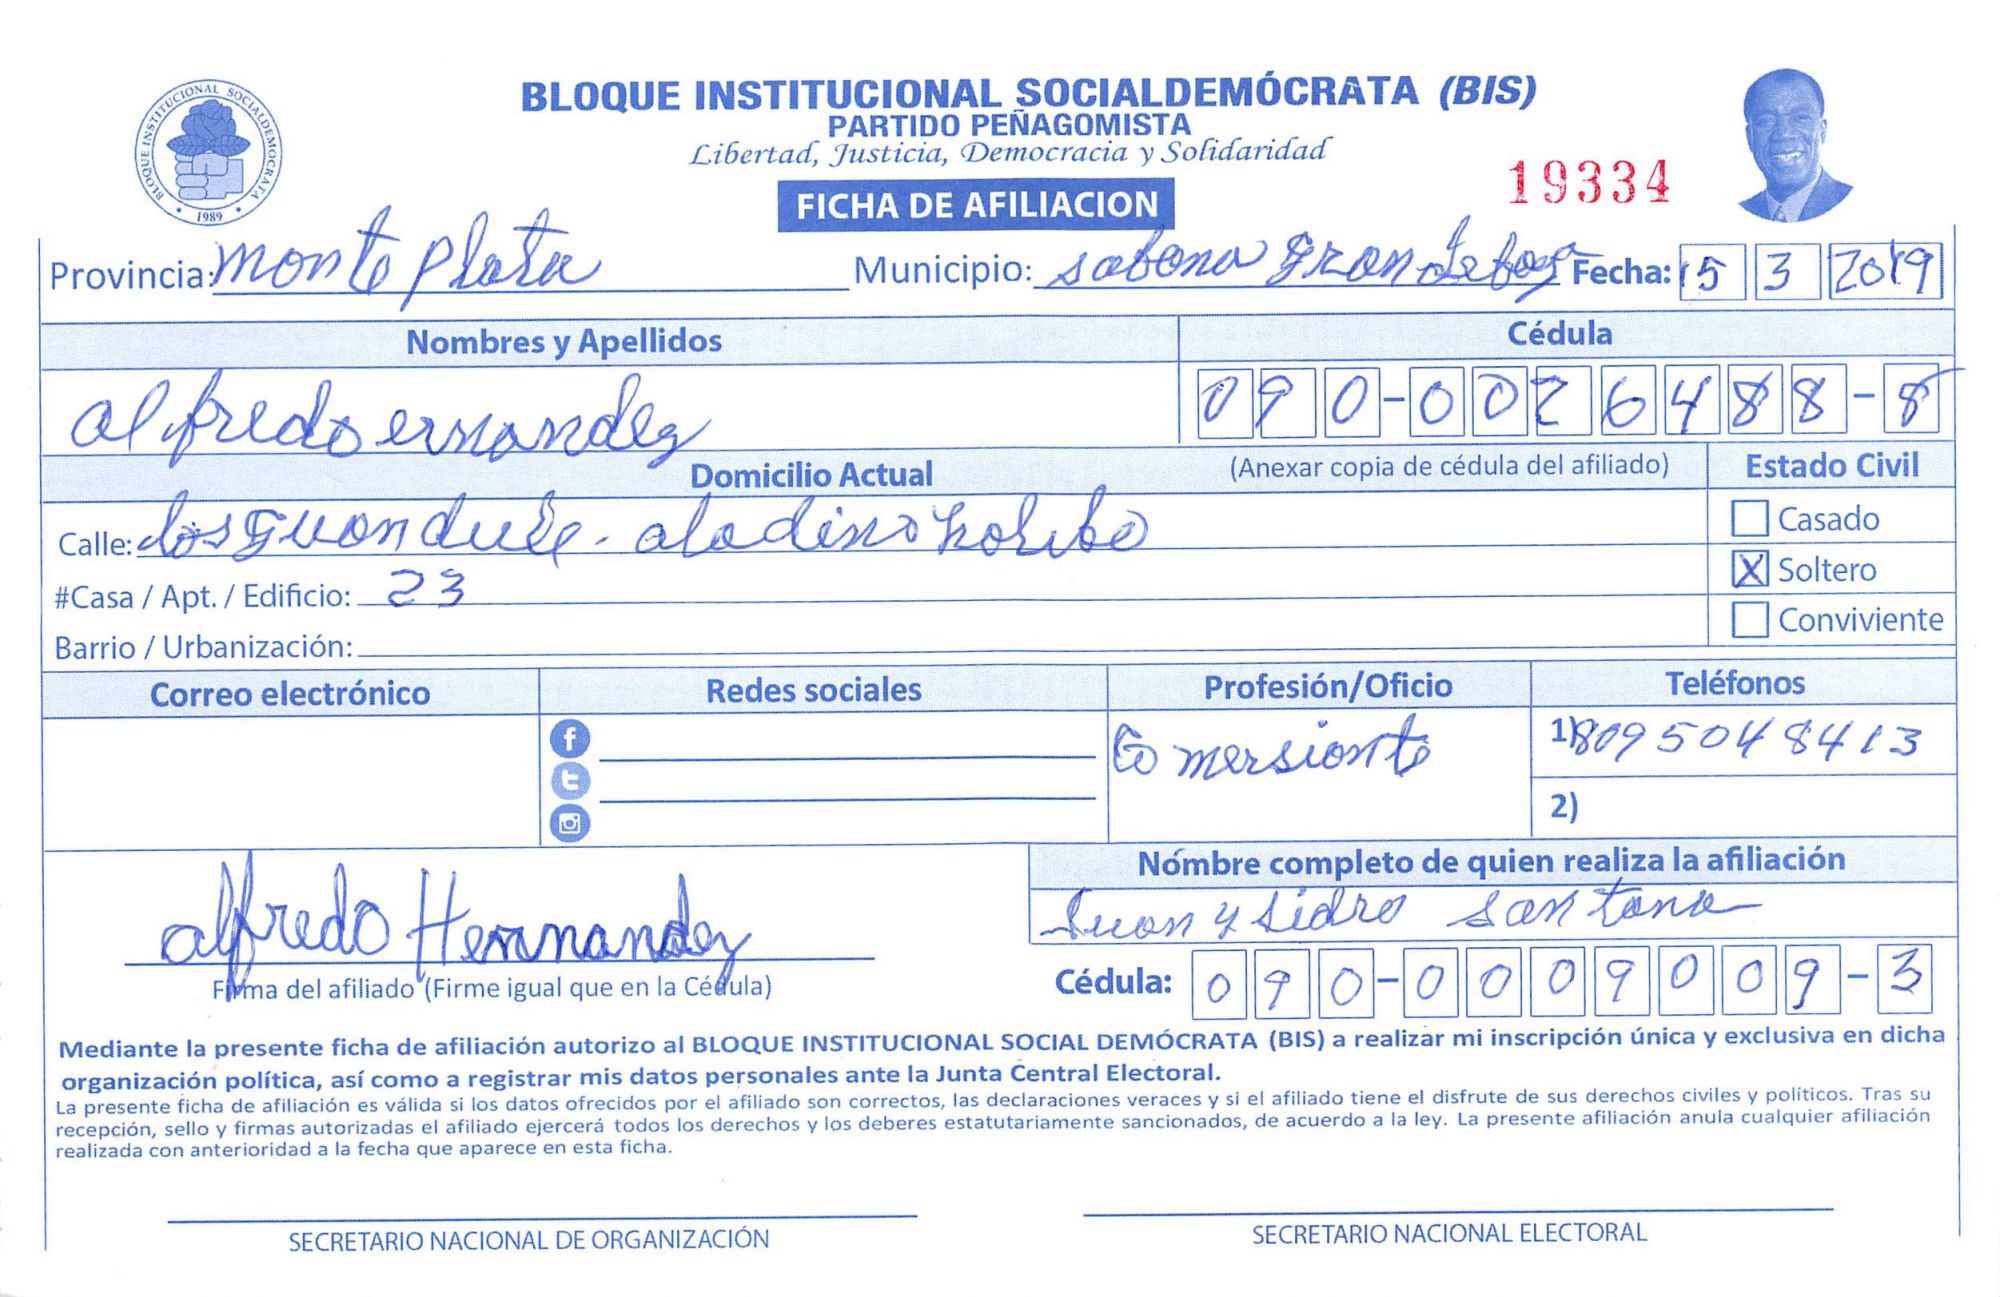 BLOQUE INSTITUCIONAL SOCIALDEMOCRATA
1989
BLOQUE INSTITUCIONAL SOCIALDEMÓCRATA (BIS)
PARTIDO PEÑAGOMISTA
Libertad, Justicia, Democracia y Solidaridad
19334
FICHA DE AFILIACION
Provincia: monte plata Municipio: sabana grande boy Fecha: 15 3 2019
Nombres y Apellidos Cédula
alfredo ernandez 090-0026488-8
Domicilio Actual (Anexar copia de cédula del afiliado) Estado Civil
Calle: los guandule - aladino Casado
#Casa / Apt. / Edificio: 23 X Soltero
Barrio / Urbanización: Conviviente
Correo electrónico Redes sociales Profesión/Oficio Teléfonos
Comersiante 1) 8095048413
2)
Nombre completo de quien realiza la afiliación
alfredo Hernandez Juan ysidro santana
Firma del afiliado (Firme igual que en la Cédula) Cédula: 090-0009009-3
Mediante la presente ficha de afiliación autorizo al BLOQUE INSTITUCIONAL SOCIAL DEMÓCRATA (BIS) a realizar mi inscripción única y exclusiva en dicha
organización política, así como a registrar mis datos personales ante la Junta Central Electoral.
La presente ficha de afiliación es válida si los datos ofrecidos por el afiliado son correctos, las declaraciones veraces y si el afiliado tiene el disfrute de sus derechos civiles y políticos. Tras su
recepción, sello y firmas autorizadas el afiliado ejercerá todos los derechos y los deberes estatutariamente sancionados, de acuerdo a la ley. La presente afiliación anula cualquier afiliación
realizada con anterioridad a la fecha que aparece en esta ficha.
SECRETARIO NACIONAL DE ORGANIZACIÓN SECRETARIO NACIONAL ELECTORAL